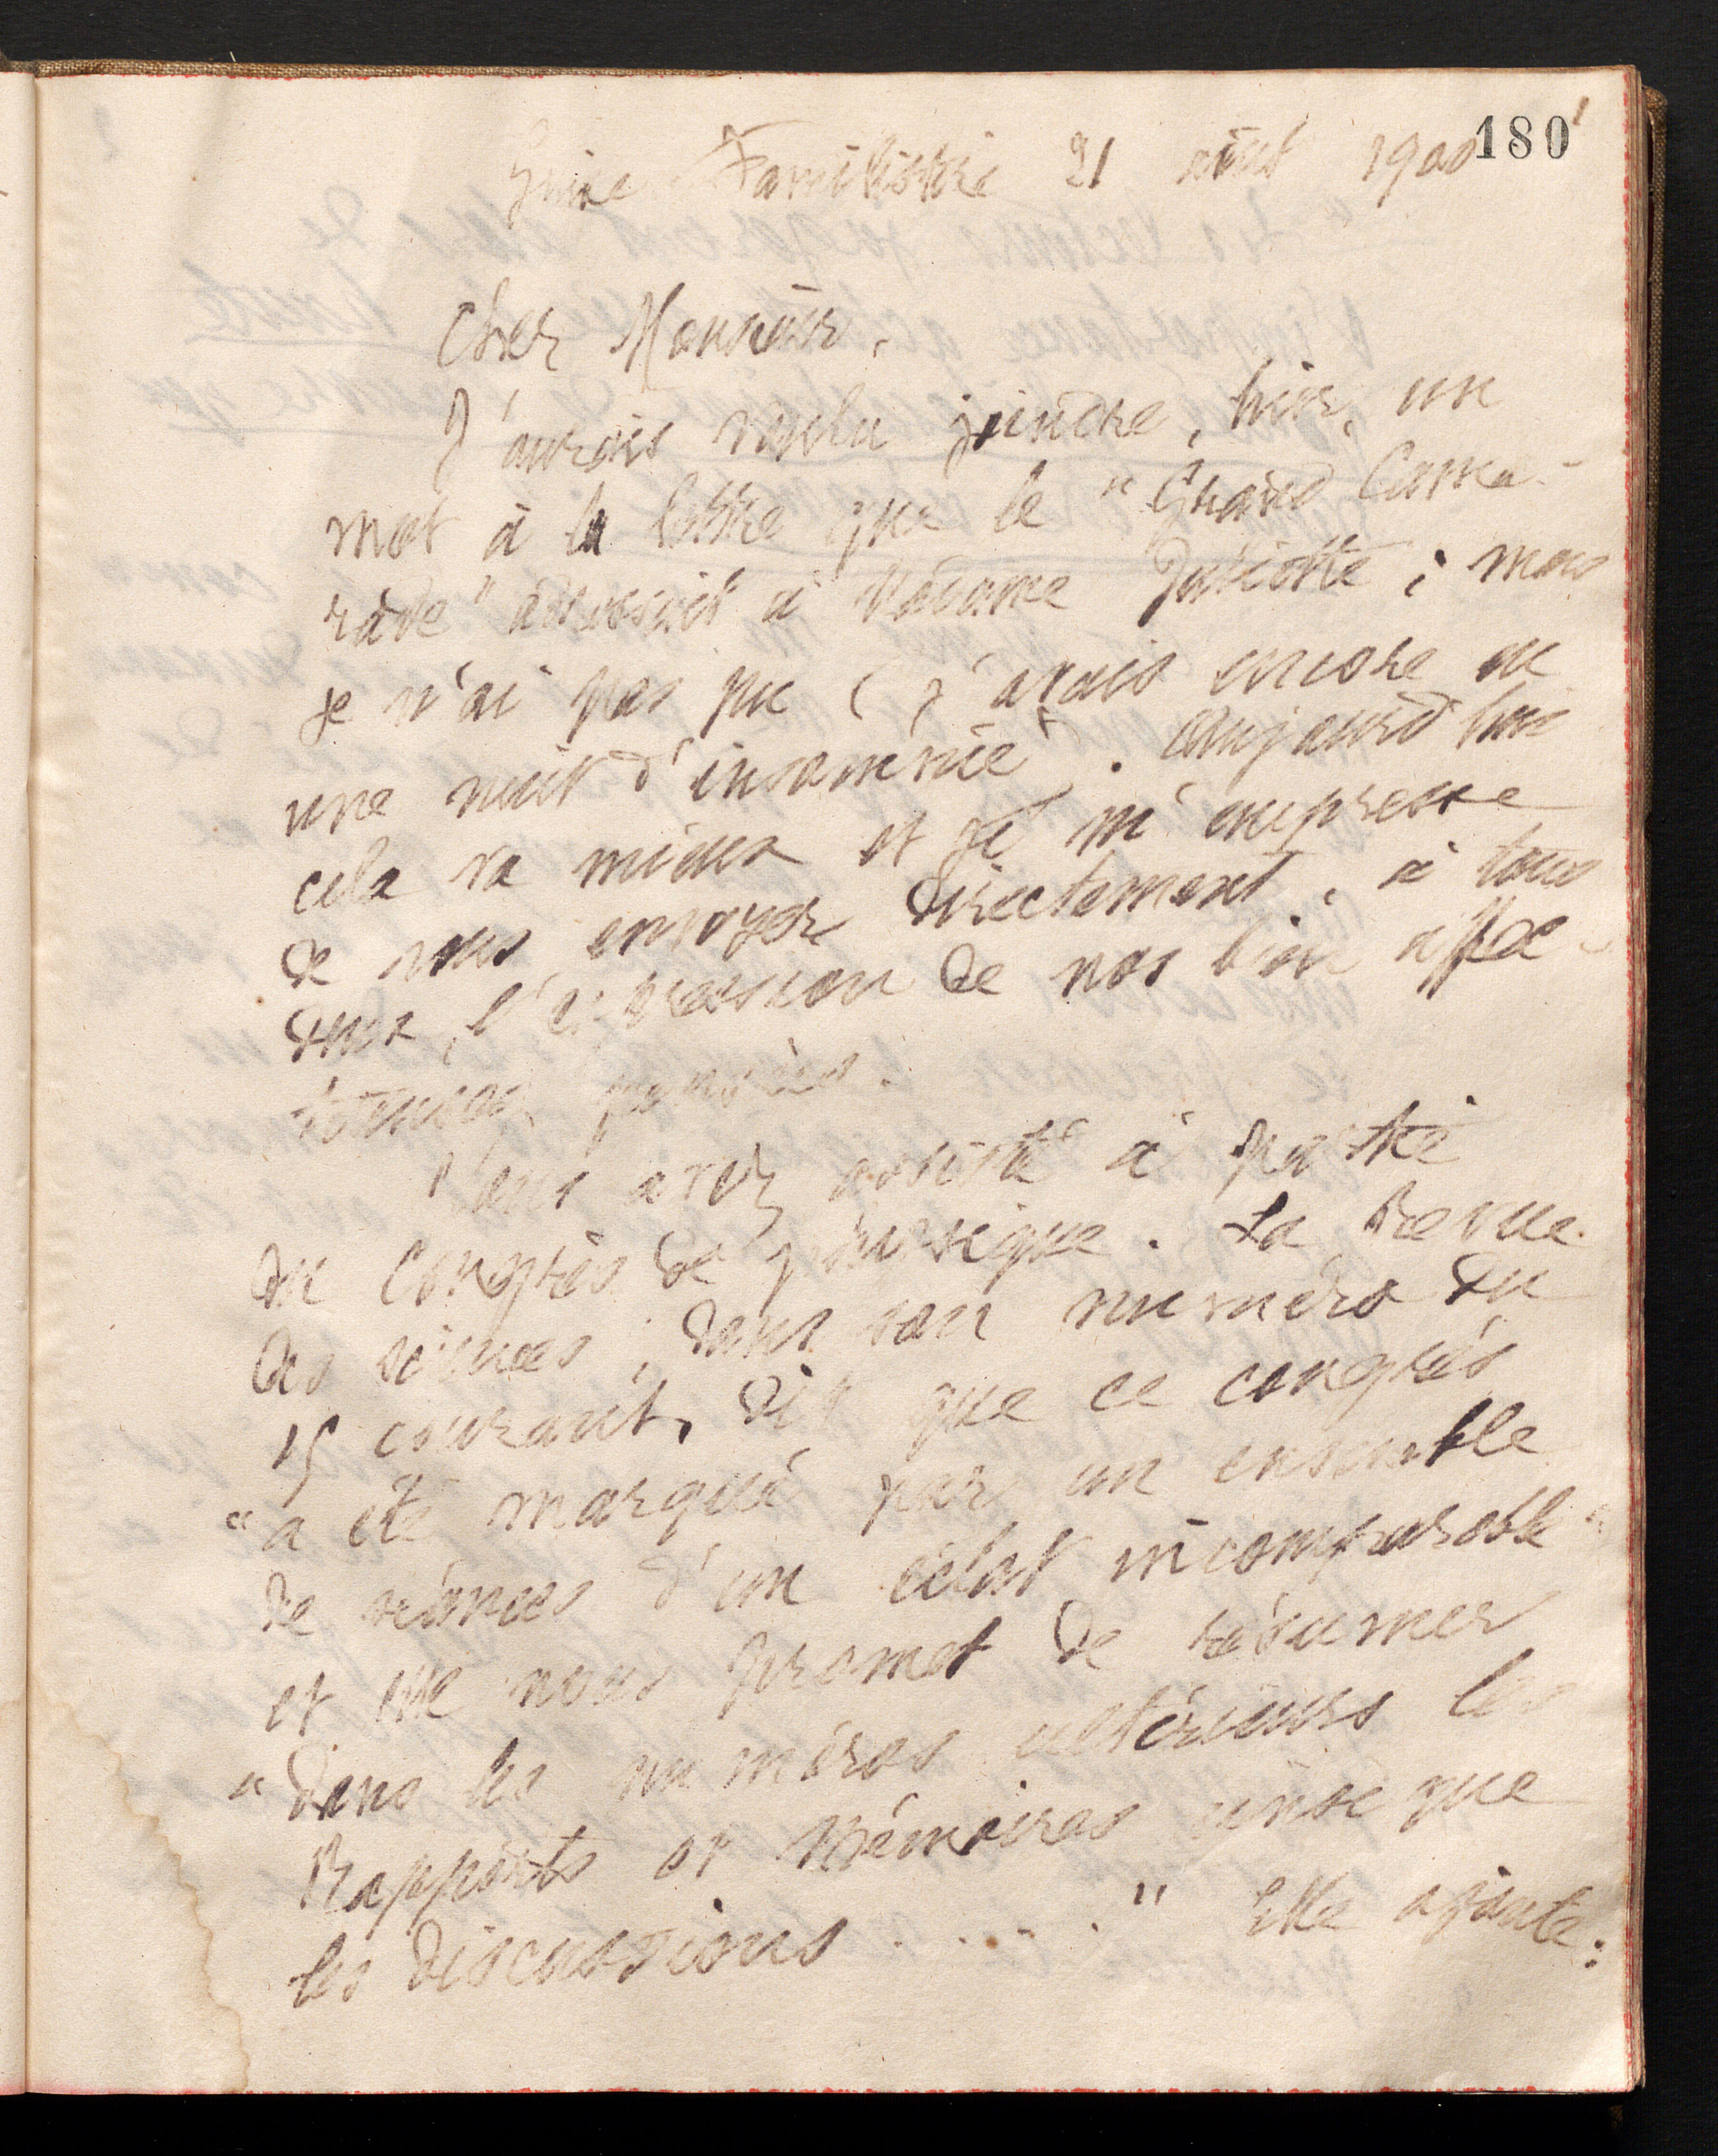 180 1
Guise Familistère 21 août 1900
Cher Monsieur,
J'aurais voulu joindre, hier, un
mot à la lettre que le "Grand Cama-
rade" adressait à Madame Juliette ; mais
je n'ai pas pu (j'avais encore eu
une nuit d'insomnie). Aujourd'hui
cela va mieux et je m'empresse
de vous envoyer directement, à tous
deux, l'expression de nos bien affec-
tueuses pensées.
Vous avez assisté à partie
du Congrès de physique. La Revue
des sciences, dans son numéro du
15 courant, dit que ce congrès
"a été marqué par un ensemble
de séances d'un éclat incomparable"
et elle nous promet de résumer
"dans les numéros ultérieurs les
Rapports et Mémoires ainsi que
les discussions . . . . " Elle ajoute :